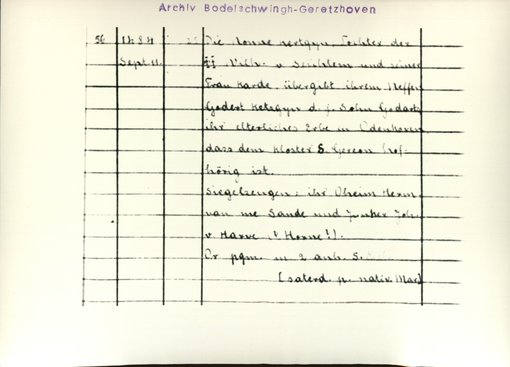 Archiv Bodelschwingh-Geretzhoven
56 1484 Die Nonne Tochter der
Sept 11. v und seiner
Frau Karde, übergibt ihrem Neffen
Godert Ketzgyn d. j. Sohn Godarts
ihr elterliches Erbe in Odenhoven
dass dem Kloster S. Gereon hof-
hörig ist.
Siegelzeugen: ihr Oheim Herm.
van me Sande und Junker Joh.
v. Harve (? Horne?).
Or. pgm. m 2 anh. S.
(saterd. p. nativ. Mar)